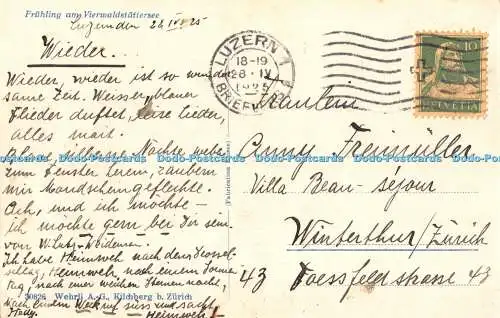 Frühling am Vierwaldstättersee
Luzern den 28. IV. 25
Wieder...
Wieder, wieder ist so wunder
same Zeit. Weisser, blauer
Flieder duftet, leise Lieder,
alles mait.
Ach, silberne Nächte webe
zum Fenster herein, zaubern
mir Mondscheingeflechte.
Ach, und ich möchte –
ich möchte gern bei Dir sein
von
Ich habe Heimweh nach dem Drossel-
schlag, Heimweh nach einem Sonne
tag, nach einer weichen Frauen
nach einem Wort süss und sacht
Heimweh!
LUZERN 1
18-19
28. IV
1925
BRIEFV
10
HELVETIA
Fräulein
Anny Freimüller
Villa Beau-séjour
Winterthur/Zürich
43 Toessfeldstrasse 43
30826 Wehrli A.-G., Kilchberg b. Zürich
Dodo-Postcards Dodo-Postcards Dodo-Postcards Dodo-Postcards Dodo-Postcards Dodo-Postcards